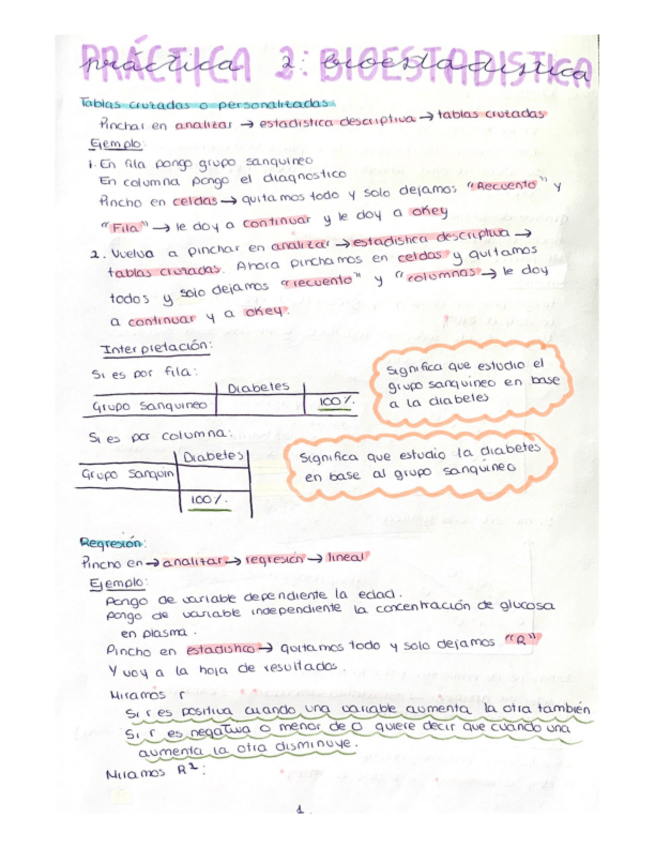 PRÁCTICA 2: BIOESTADISTICA
práctica 2: bioestadística
Tablas cruzadas o personalizadas
Pinchar en analizar → estadística descriptiva → tablas cruzadas
Ejemplo:
1. En fila pongo grupo sanguineo
En columna pongo el diagnostico
Pincho en celdas → quitamos todo y solo dejamos "Recuento" y
"Fila" → le doy a continuar y le doy a okey
2. Vuelvo a pinchar en analizar → estadística descriptiva →
tablas cruzadas. Ahora pinchamos en celdas y quitamos
todos y solo dejamos "recuento" y "columnas → le doy
a continuar y a okey.
Interpretación:
Si es por fila:
Diabetes
Grupo Sanguineo 100%.
Significa que estudio el
grupo sanguineo en base
a la diabetes
Si es por columna:
Diabetes
Grupo Sanguin
100%.
Significa que estudio la diabetes
en base al grupo sanguineo
Regresión:
Pincho en → analizar → regresión → lineal
Ejemplo:
Pongo de variable dependiente la edad.
Pongo de variable independiente la concentración de glucosa
en plasma.
Pincho en estadístico → quitamos todo y solo dejamos "R"
Y voy a la hoja de resultados.
Miramos r
Si r es positiva cuando una variable aumenta la otra también
Si r es negativa o menor de 0 quiere decir que cuando una
aumenta la otra disminuye.
Miramos R²:
1